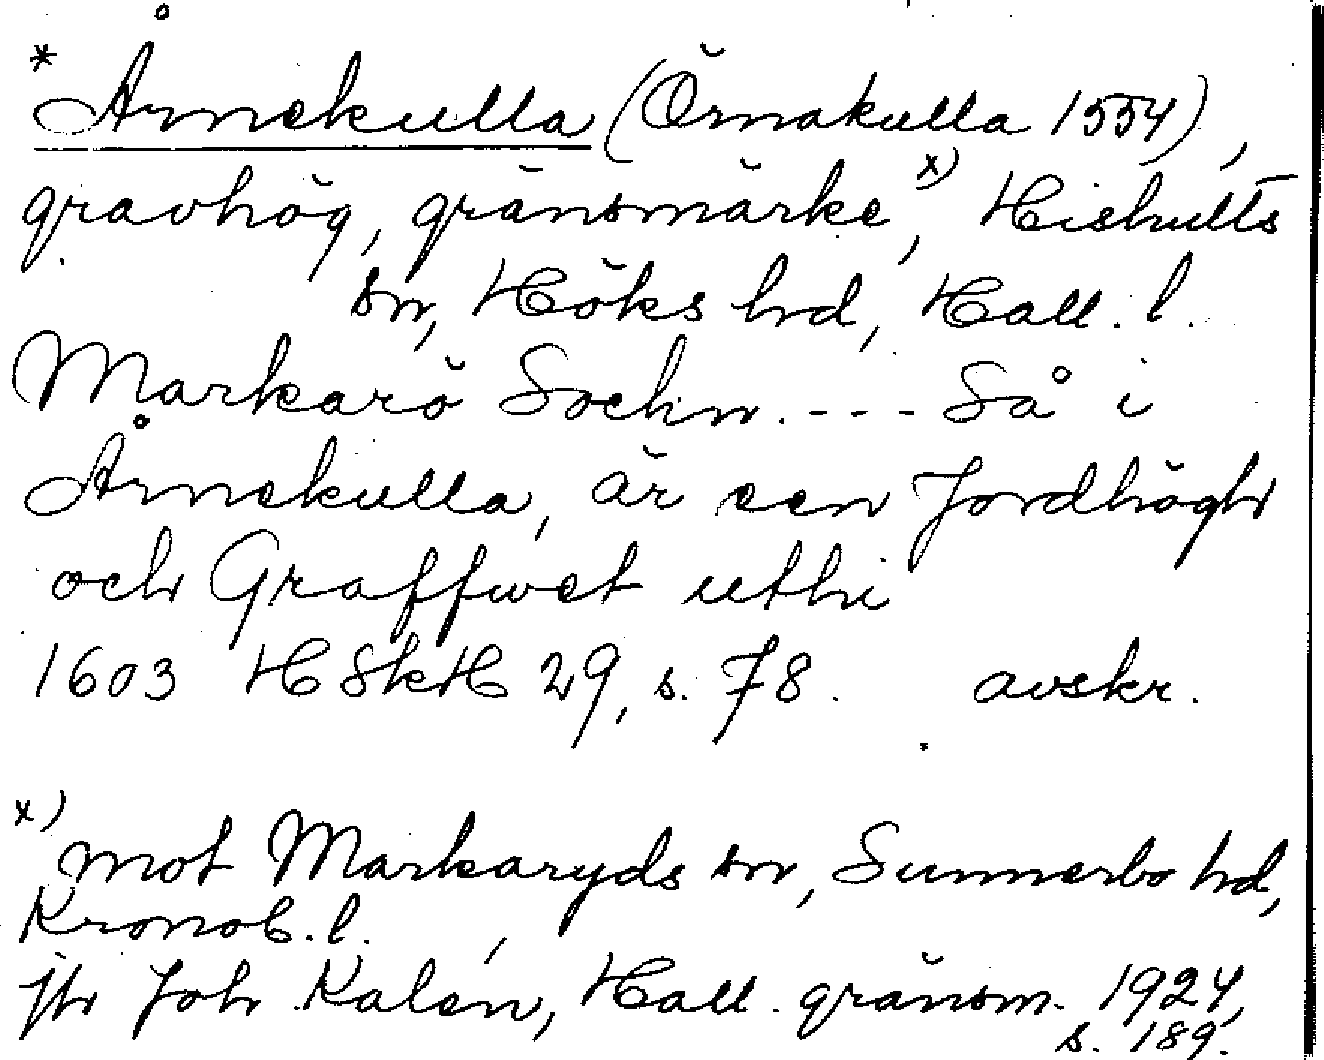 * Årnekulla (Örnakulla 1554),
gravhög, gränsmärke,x) Hishults
sn, Höks hd, Hall. l.
Markarö Sochn. - - - Så i
Årnekulla, är een Jordhögh
och Graffwet uthi
1603 HSkH 29, s. 78. avskr.
x) mot Markaryds sn, Sunnerbo hd,
Kronob. l.
jfr Joh Kalén, Hall. gränsm. 1924,
s. 189.